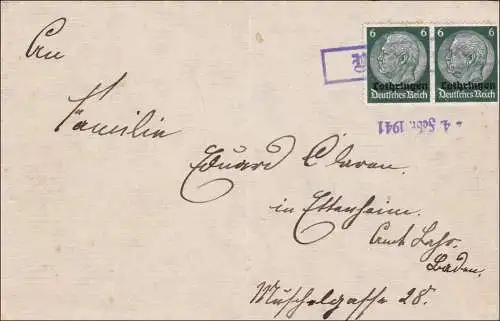 6 6
Lothringen
Deutsches Reich
6 6
Lothringen
Deutsches Reich
4. Febr. 1941
An
Familie
Eduard
in Ettenheim.
Amt Lahr.
Baden.
Muschelgasse 28.